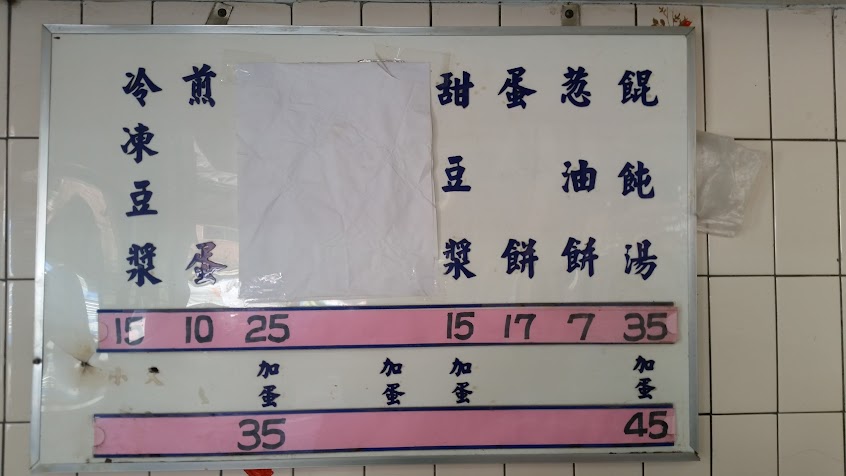 餛飩湯
葱油餅
蛋餅
甜豆漿
煎蛋
冷凍豆漿
15 10 25 15 17 7 35
加蛋 加蛋 加蛋 加蛋
35 45